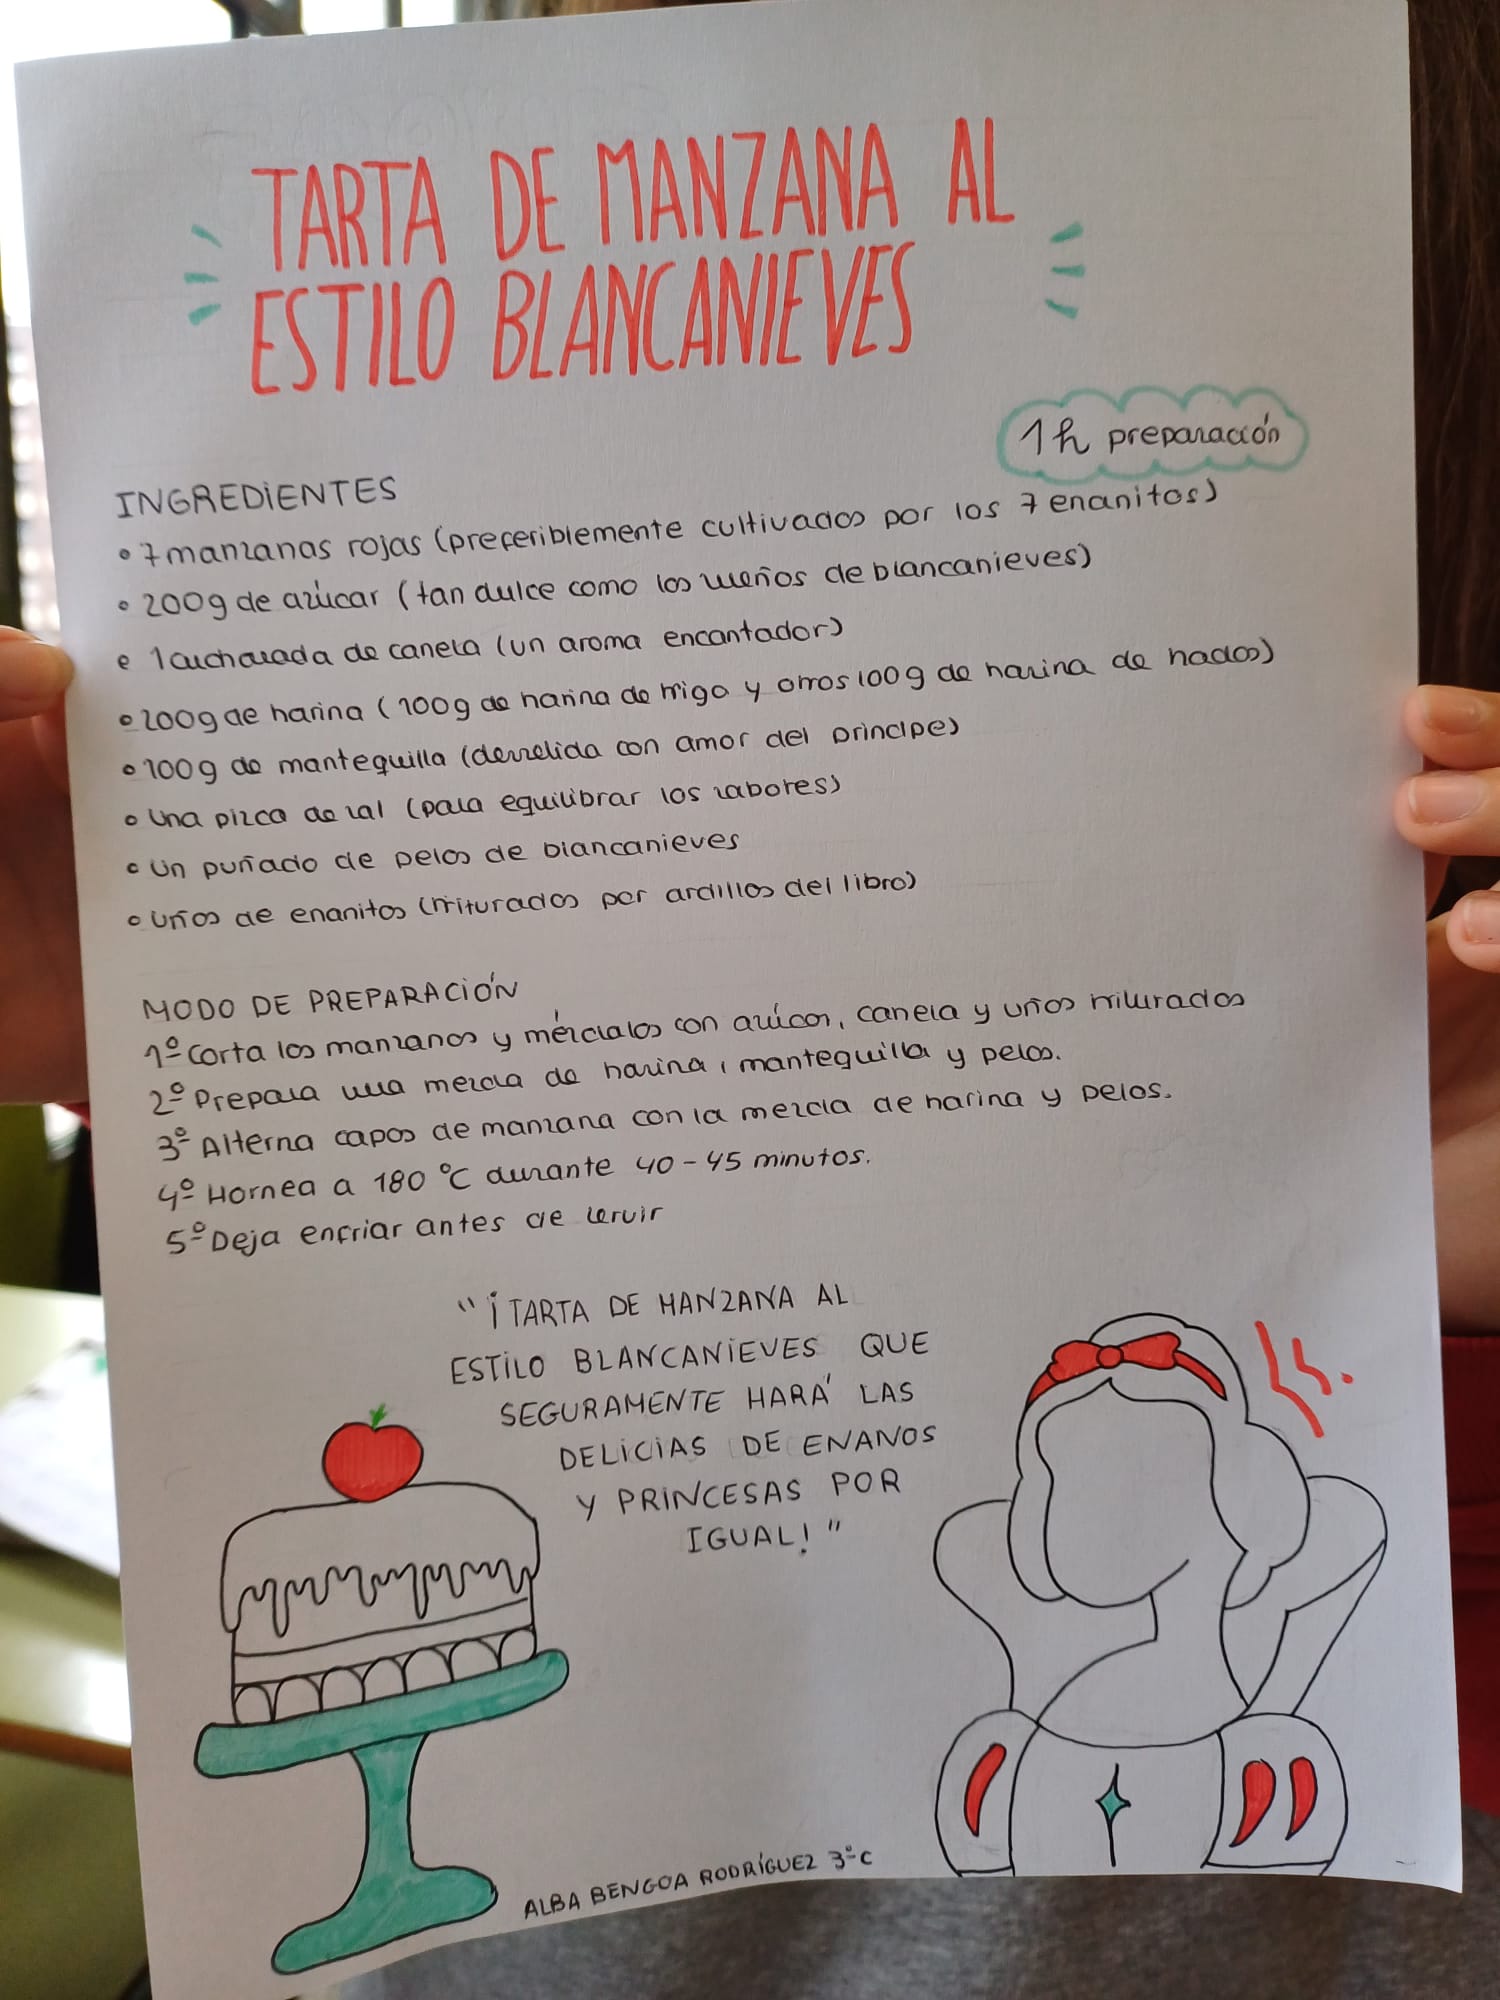 TARTA DE MANZANA AL
ESTILO BLANCANIEVES
1h preparación
INGREDIENTES
• 7 manzanas rojas (preferiblemente cultivadas por los 7 enanitos)
• 200g de azúcar (tan dulce como los sueños de blancanieves)
• 1 cucharada de canela (un aroma encantador)
• 200g de harina (100g de harina de trigo y otros 100g de harina de hadas)
• 100g de mantequilla (derretida con amor del principe)
• Una pizca de sal (para equilibrar los sabores)
• Un puñado de pelos de blancanieves
• Uñas de enanitos (trituradas por ardillas del libro)
MODO DE PREPARACIÓN
1º Corta las manzanas y mézclalas con azúcar, canela y uñas trituradas
2º Prepara una mezcla de harina, mantequilla y pelos.
3º Alterna capas de manzana con la mezcla de harina y pelos.
4º Hornea a 180 ºC durante 40-45 minutos.
5º Deja enfriar antes de servir
"¡TARTA DE MANZANA AL
ESTILO BLANCANIEVES QUE
SEGURAMENTE HARÁ LAS
DELICIAS DE ENANOS
Y PRINCESAS POR
IGUAL!"
ALBA BENGOA RODRÍGUEZ 3ºC